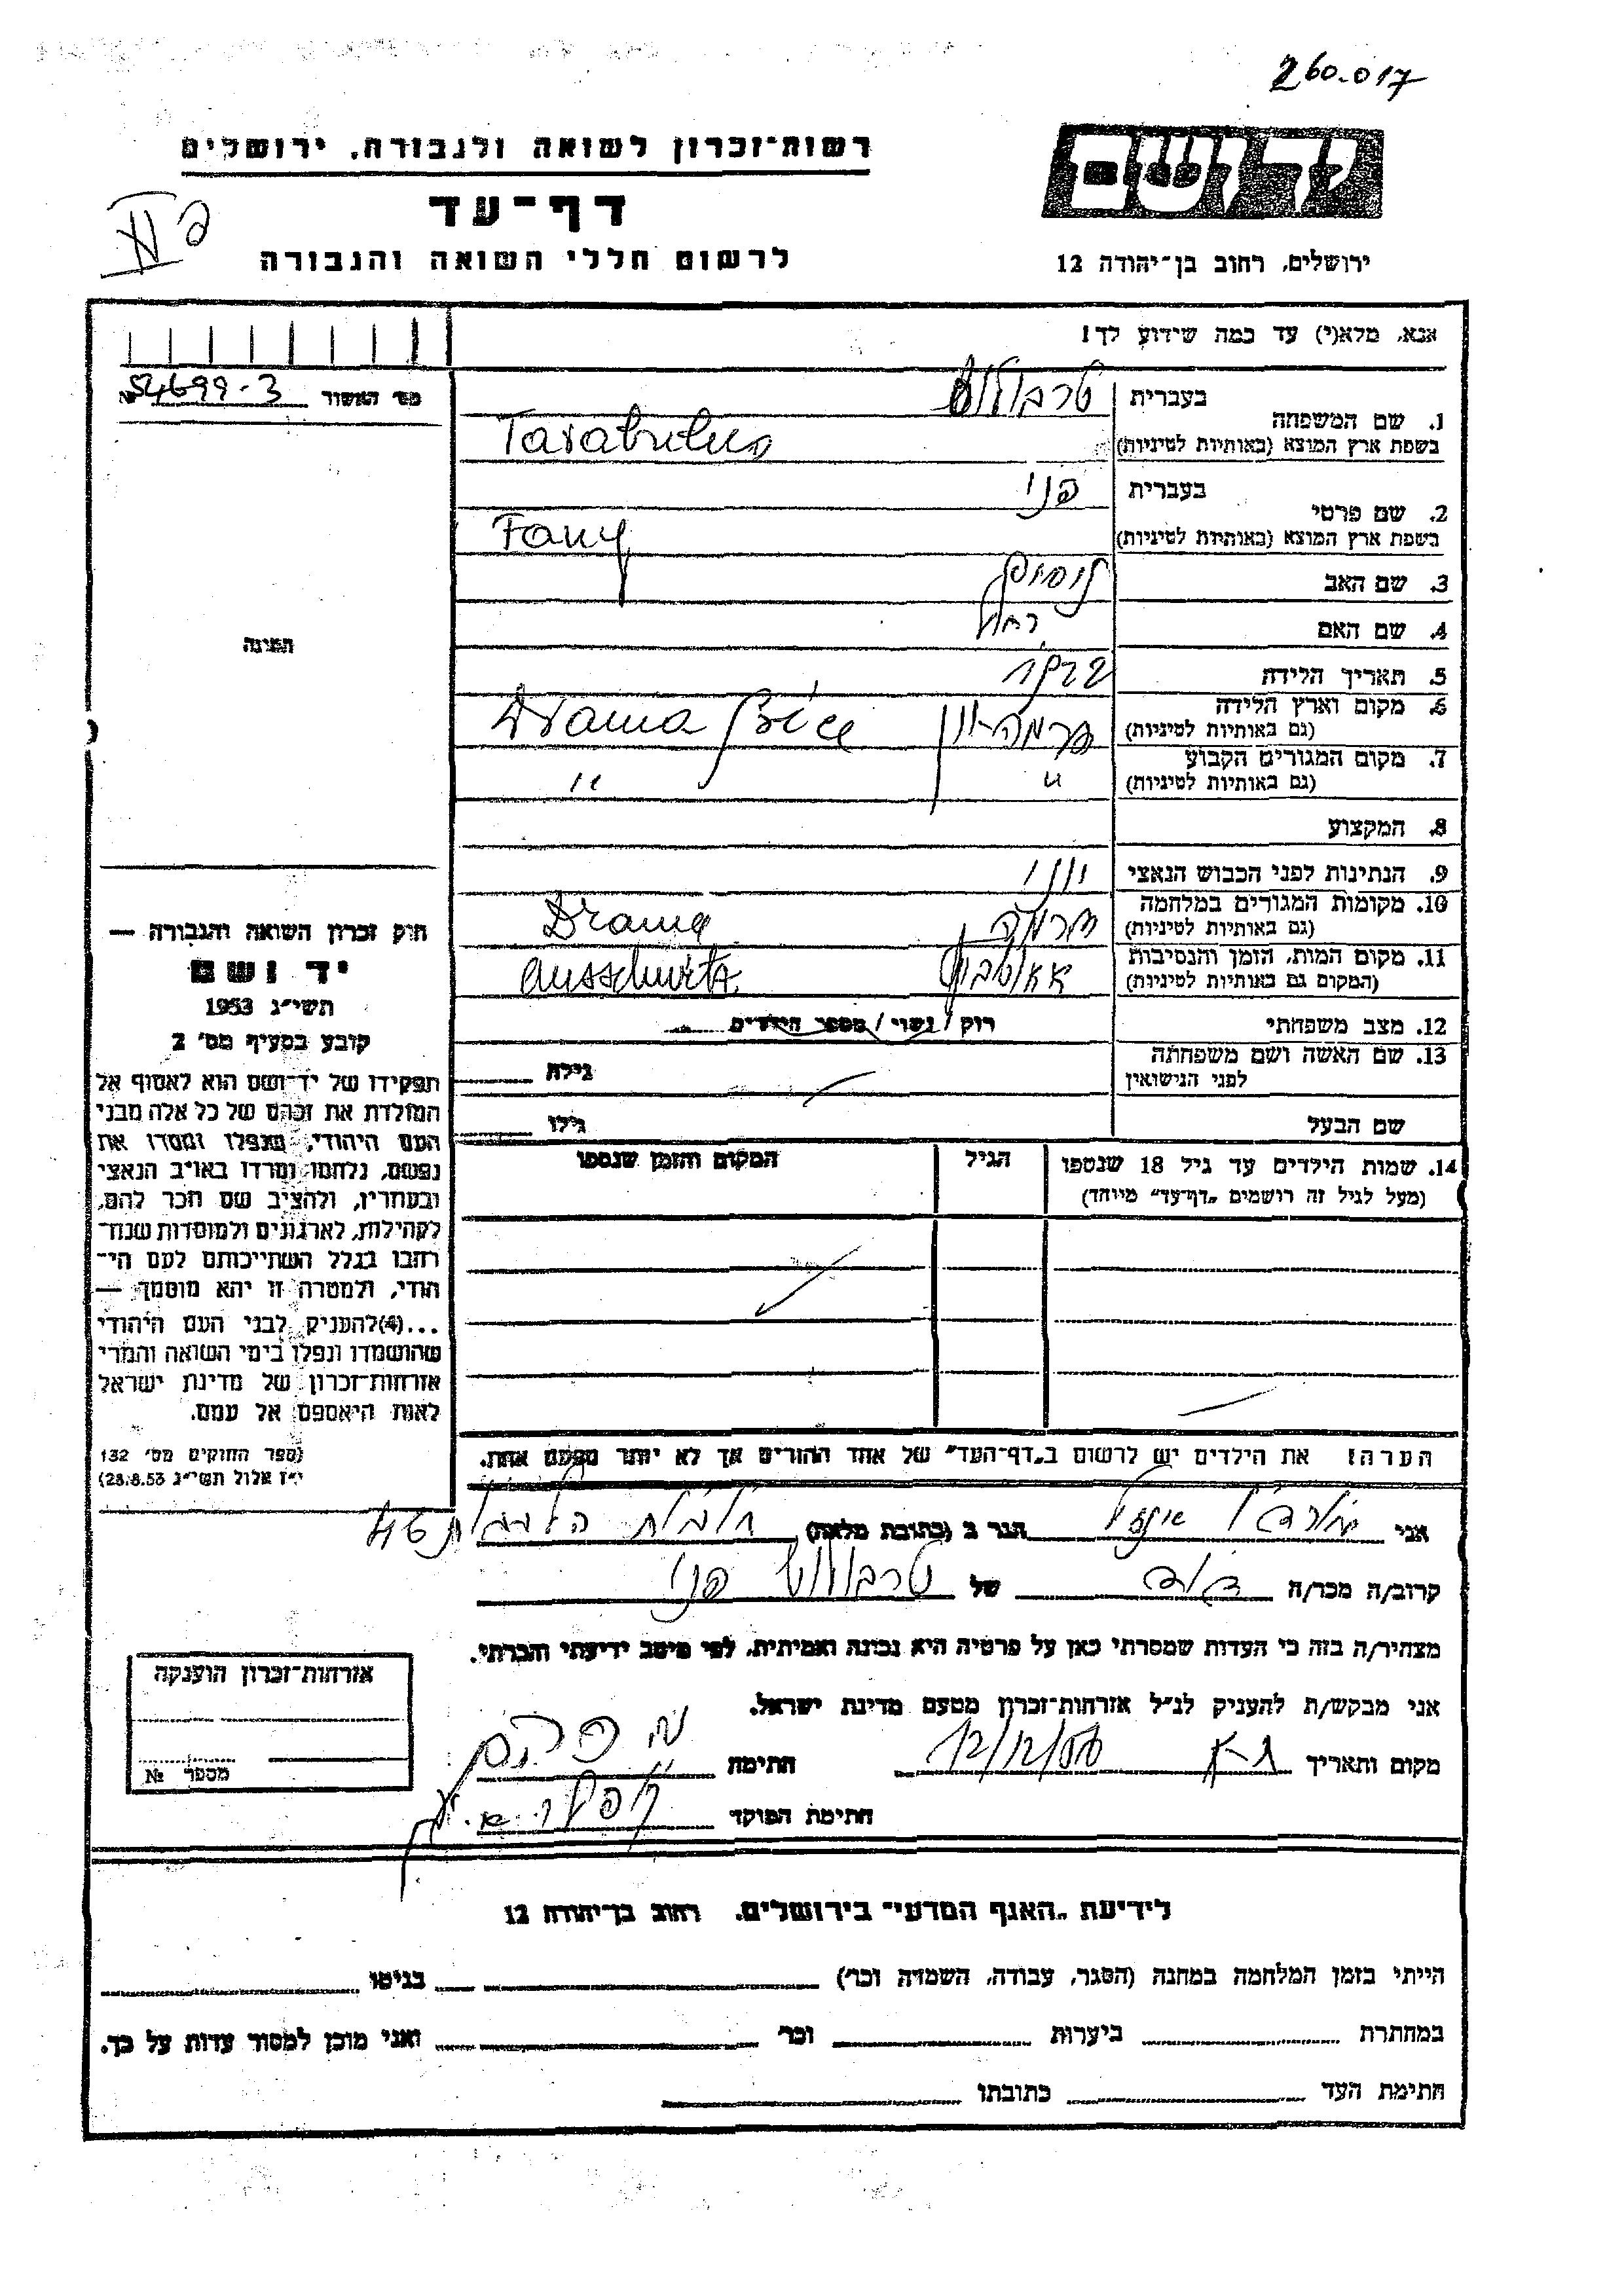 260.017
רשות-זכרון לשואה ולגבורה, ירושלים
יד ושם
דף-עד
לרשום חללי השואה והגבורה
ירושלים, רחוב בן-יהודה 12
אנא, מלא(י) עד כמה שידוע לך!
מס' האשור № 54699-3
1. שם המשפחה
בעברית טרבולוס
בשפת ארץ המוצא (באותיות לטיניות) Tarabulus
2. שם פרטי
בעברית פני
בשפת ארץ המוצא (באותיות לטיניות) Fany
3. שם האב
4. שם האם רחל
5. תאריך הלידה
6. מקום וארץ הלידה
(גם באותיות לטיניות) Drama Grèce
7. מקום המגורים הקבוע
(גם באותיות לטיניות) " "
8. המקצוע
9. הנתינות לפני הכבוש הנאצי יוני
10. מקומות המגורים במלחמה
(גם באותיות לטיניות) דרמה Drama
11. מקום המות, הזמן והנסיבות
(המקום גם באותיות לטיניות) Ausschwitz
12. מצב משפחתי רוק/נשוי/מספר הילדים
13. שם האשה ושם משפחתה
לפני הנישואין גילה
שם הבעל גילו
14. שמות הילדים עד גיל 18 שנספו
(מעל לגיל זה רושמים „דף-עד" מיוחד)
הגיל
המקום והזמן שנספו
הערה! את הילדים יש לרשום ב„דף-העד" של אחד ההורים אך לא יותר מפעם אחת.
התמונה
חוק זכרון השואה והגבורה —
יד ושם
תשי״ג 1953
קובע בסעיף מס' 2
תפקידו של יד-ושם הוא לאסוף אל
המולדת את זכרם של כל אלה מבני
העם היהודי, שנפלו ומסרו את
נפשם, נלחמו ומרדו באויב הנאצי
ובעוזריו, ולהציב שם וזכר להם,
לקהילות, לארגונים ולמוסדות שנח-
רבו בגלל השתייכותם לעם הי-
הודי, ולמטרה זו יהא מוסמך —
...(4) להעניק לבני העם היהודי
שהושמדו ונפלו בימי השואה והמרי
אזרחות-זכרון של מדינת ישראל
לאות היאספם אל עמם.
(ספר החוקים מס' 132
י״ז אלול תשי״ג 28.8.53)
אני
הגר ב (כתובת מלאה)
קרוב/ה מכר/ה
של טרבולוס פני
מצהיר/ה בזה כי העדות שמסרתי כאן על פרטיה היא נכונה ואמיתית, לפי מיטב ידיעתי והכרתי.
אני מבקש/ת להעניק לנ״ל אזרחות-זכרון מטעם מדינת ישראל.
מקום ותאריך
חתימה
חתימת הפוקד
אזרחות-זכרון הוענקה
מספר №
לידיעת „האגף המדעי" בירושלים, רחוב בן-יהודה 12
הייתי בזמן המלחמה במחנה (הסגר, עבודה, השמדה וכו') בגיטו
במחתרת ביערות וכו' ואני מוכן למסור עדות על כך.
חתימת העד כתובתו